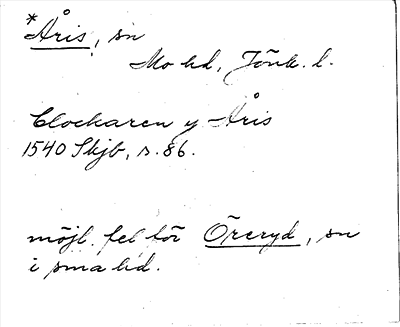 *Åris, sn
Mo hd, Jönk. l.
Clockaren y Åris
1540 Skjb, s. 86.
möjl. fel för Öreryd, sn
i sma hd.